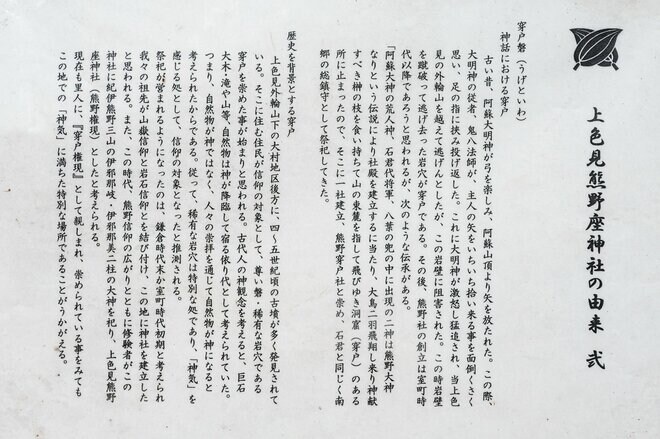 上色見熊野座神社の由来　弐
穿戸磐（うげといわ）
神話における穿戸
古い昔、阿蘇大明神が弓を楽しみ、阿蘇山頂より矢を放たれた。この際、
大明神の従者、鬼八法師が、主人の矢をいちいち拾い来る事を面倒くさく
思い、足の指に挟み投げ返した。これに大明神が激怒し猛追され、当上色
見の外輪山を越えて逃げんとしたが、この岩壁に阻害された。この時岩壁
を蹴破って逃げ去った岩穴が穿戸である。その後、熊野社の創立は室町時
代以降であろうと思われるが、次のような伝承がある。
「阿蘇大神の荒人神、石君代将軍、八葉の兜の中に出現の二神は熊野大神
なりという伝説により社殿を建立するに当たり、大鳥二羽飛翔し来り神献
すべき榊の枝を食い持ちて山の東麓を指して飛びゆき洞窟（穿戸）のある
所に止まったので、そこに一社建立、熊野穿戸社と崇め、石君と同じく南
郷の総鎮守として祭祀してきた。
歴史を背景とする穿戸
上色見外輪山下の大村地区後方に、四～五世紀頃の古墳が多く発見されて
いる。そこに住む住民が信仰の対象として、尊い磐・稀有な岩穴である
穿戸を崇めた事が始まりと思われる。古代人の神観念を考えると、巨石
大木・滝や山等、自然物は神が降臨して宿る依り代として考えられていた。
つまり、自然物が神ではなく、人々の崇拝を通じて自然物が神になると
考えられたからである。従って、稀有な岩穴は特別な処であり、「神気」を
感じる処として、信仰の対象となったと推測される。
祭祀が営まれるようになったのは、鎌倉時代末か室町時代初期と考えられ
我々の祖先が山嶽信仰と岩石信仰とを結び付け、この地に神社を建立した
と思われる。また、この時代、熊野信仰の広がりとともに修験者がこの
神社に紀伊熊野三山の伊邪那岐、伊邪那美二柱の大神を祀り、上色見熊野
座神社（熊野権現）としたと考えられる。
現在も里人に、『穿戸権現』として親しまれ、崇められている事をみても
この地での「神気」に満ちた特別な場所であることがうかがえる。